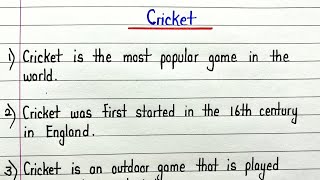 Cricket
1) Cricket is the most popular game in the
world.
2) Cricket was first started in the 16th century
in England.
3) Cricket is an outdoor game that is played